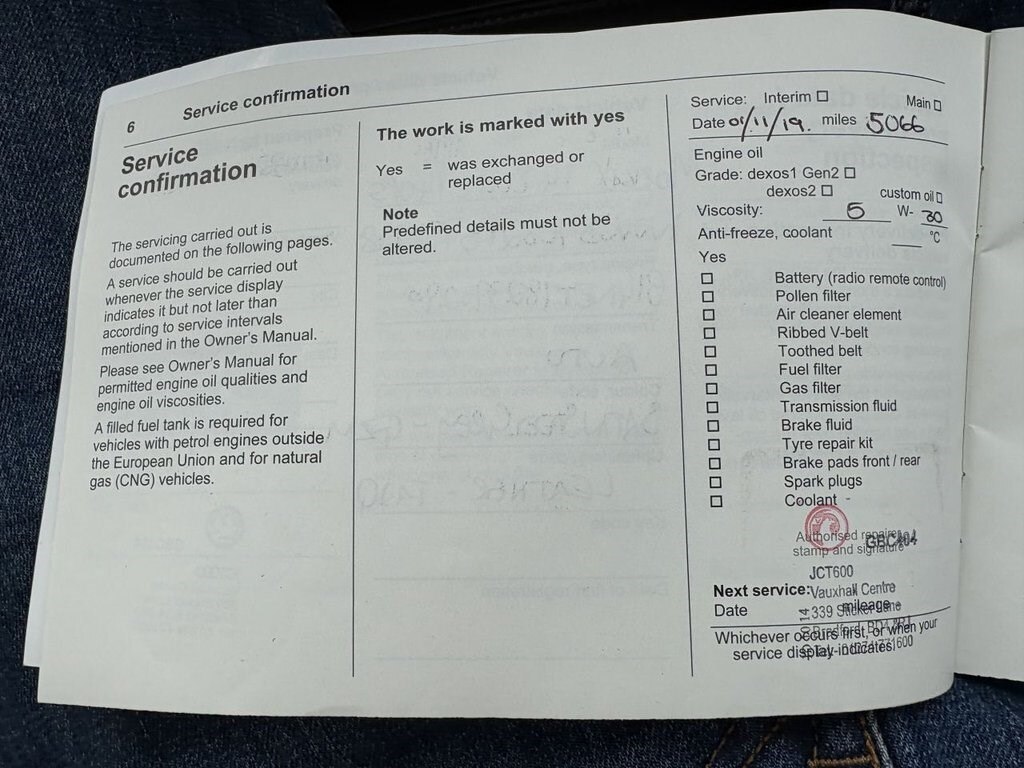 6 Service confirmation
Service
confirmation
The servicing carried out is
documented on the following pages.
A service should be carried out
whenever the service display
indicates it but not later than
according to service intervals
mentioned in the Owner's Manual.
Please see Owner's Manual for
permitted engine oil qualities and
engine oil viscosities.
A filled fuel tank is required for
vehicles with petrol engines outside
the European Union and for natural
gas (CNG) vehicles.
The work is marked with yes
Yes = was exchanged or
replaced
Note
Predefined details must not be
altered.
Service: Interim ☐ Main ☐
Date 01/11/19. miles 5066
Engine oil
Grade: dexos1 Gen2 ☐
dexos2 ☐ custom oil ☐
Viscosity: 5 W- 30
Anti-freeze, coolant °C
Yes
☐ Battery (radio remote control)
☐ Pollen filter
☐ Air cleaner element
☐ Ribbed V-belt
☐ Toothed belt
☐ Fuel filter
☐ Gas filter
☐ Transmission fluid
☐ Brake fluid
☐ Tyre repair kit
☐ Brake pads front / rear
☐ Spark plugs
☐ Coolant
Authorised repairer
GBC404
stamp and signature
JCT600
Next service: Vauxhall Centre
Date mileage
339 Sticker Lane
Whichever occurs first, or when your
Bradford
service display indicates